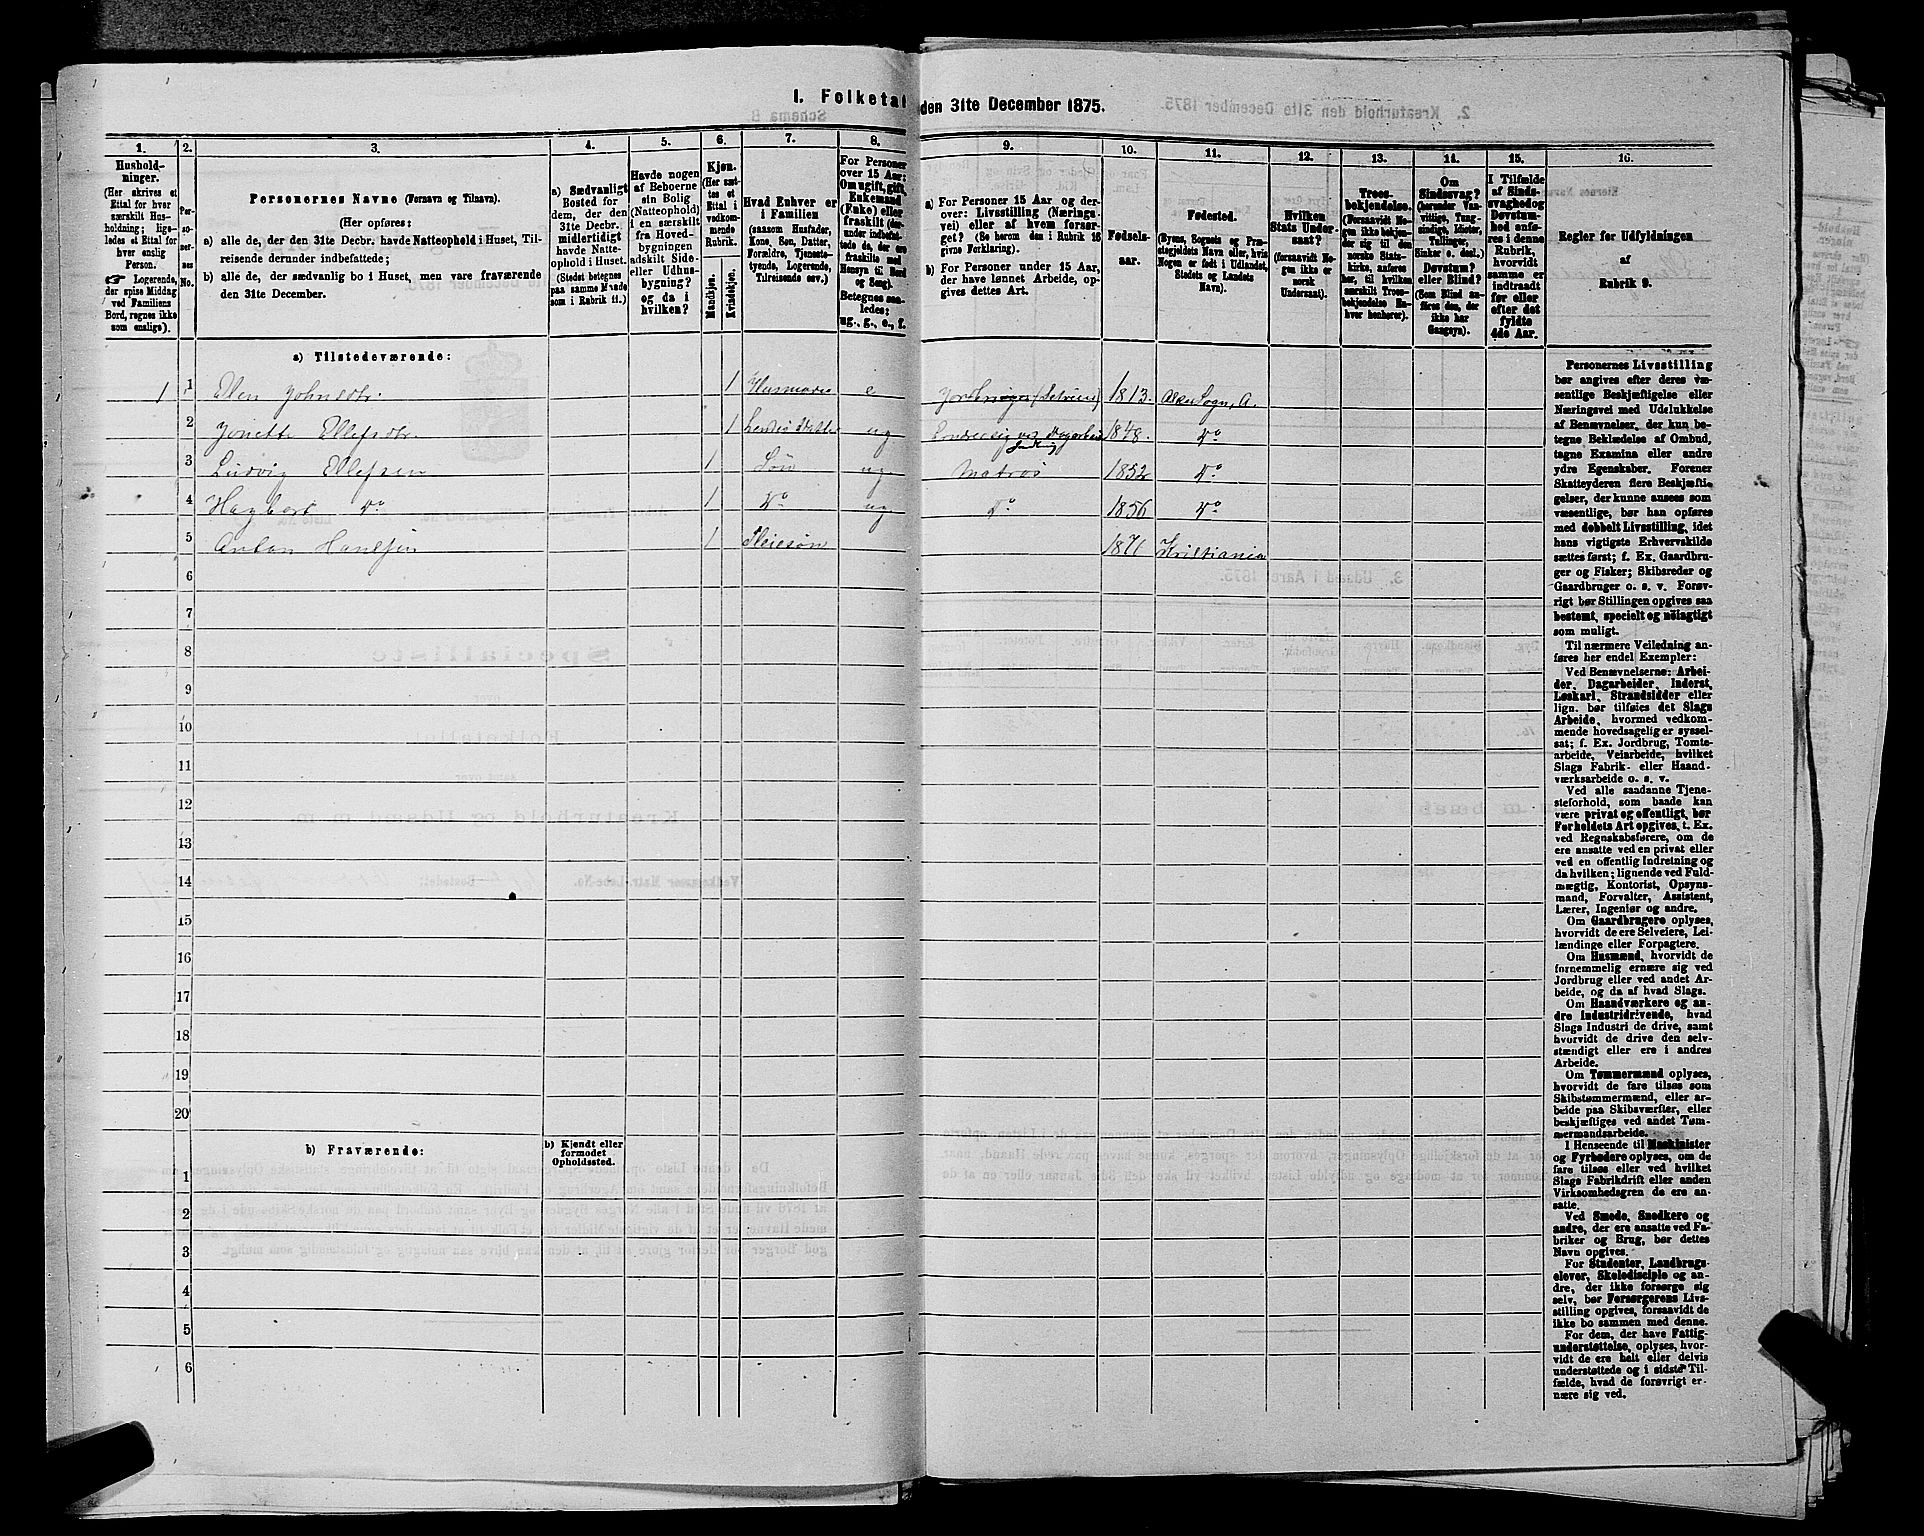 I. Folketal den 31te December 1875.
1.
2.
3.
4.
5.
6.
7.
8.
9.
10.
11.
12.
13.
14.
15.
16.
Hushold-
ninger.
(Her skrives et
Ettal for hver
særskilt Hus-
holdning; lige-
ledes et Ettal for
hver enslig
Person.
Logerende,
der spise Middag
ved Familiens
Bord, regnes ikke
som enslige).
Per-
so-
ner-
nes
No.
Personernes Navne (Fornavn og Tilnavn).
(Her opføres:
a) alle de, der den 31te Decbr. havde Natteophold i Huset, Til-
reisende derunder indbefattede;
b) alle de, der sædvanlig bo i Huset, men vare fraværende
den 31te December.
a) Sædvanligt
Bosted for
dem, der den
31te Decbr.
midlertidigt
havde Natte-
ophold i Huset.
(Stedet betegnes
paa samme Maade
som i Rubrik 11.)
Havde nogen
af Beboerne
sin Bolig
(Natteophold)
i en særskilt
fra Hoved-
bygningen
adskilt Side-
eller Udhus-
bygning?
og da i
hvilken?
Kjøn.
(Her sæt-
tes et
Ettal i
vedkom-
mende
Rubrik.
Mandkjøn.
Kvindekjøn.
Hvad Enhver er
i Familien
(saasom Husfader,
Kone, Søn, Datter,
Forældre, Tjeneste-
tyende, Logerende,
Tilreisende osv.)
For Personer
over 15 Aar:
Om ugift, gift,
Enkemand
(Enke) eller
fraskilt (der-
under indbefat-
tede de, der ere
fraskilte med
Hensyn til Bord
og Seng).
Betegnes saa-
ledes:
ug., g., e., f.
a) For Personer 15 Aar og der-
over: Livsstilling (Nærings-
vei) eller af hvem forsør-
get? (Se herom den i Rubrik 16
givne Forklaring).
b) For Personer under 15 Aar,
der have lønnet Arbeide, op-
gives dettes Art.
Fødsels-
aar.
Fødested.
(Byens, Sognets og Præ-
stegjeldets Navn eller, hvis
Nogen er født i Udlandet,
Stedets og Landets
Navn).
Hvilken
Stats Under-
saat?
(forsaavidt No-
gen ikke er
norsk
Undersaat).
Troes-
bekjendelse.
(Forsaavidt No-
gen ikke bekjen-
der sig til den
norske Stats-
kirke, anføres
her, til hvilken
særskilt Troes-
bekjendelse En-
hver henhører).
Om
Sindssvag?
(herunder Van-
vittige, Tung-
sindige, Idioter,
Tullinger,
Sinker o. desl.)
Døvstum?
eller Blind?
(Som Blind an-
føres den, der
ikke har
Gangsyn).
I Tilfælde
af Sinds-
svaghed og
Døvstum-
hed anfø-
res i denne
Rubrik,
hvorvidt
samme er
indtraadt
før eller
efter det
fyldte
4de Aar.
Regler for Udfyldningen
af
Rubrik 9.
a) Tilstedeværende:
1 1 Ellen Johnsdtr. 1 e 1813. Sogn, A.
2 Jonette Ellefsdtr. 1 ug 1848. Do
3 Ludvig Ellefsen 1 Søn ug Matros 1852 Do
4 Do 1 Do ug Do 1856 Do
5 Anton Hansen 1 Pleiesøn 1871 Kristiania
6
7
8
9
10
11
12
13
14
15
16
17
18
19
20
b) Fraværende:
b) Kjendt eller
formodet
Opholdssted.
1
2
3
4
5
6
Personernes Livsstilling
bør angives efter deres væ-
sentlige Beskjæftigelse eller
Næringsvei med Udelukkelse
af Benævnelser, der kun be-
tegne Beklædelse af Ombud,
tagne Examina eller andre
ydre Egenskaber. Forener
Skatteyderen flere Beskjæfti-
gelser, der kunne ansees som
væsentlige, bør han opføres
med dobbelt Livsstilling, idet
hans vigtigste Erhvervskilde
sættes først; f. Ex. Gaardbru-
ger og Fisker; Skibsreder og
Gaardbruger o. s. v. Forøv-
rigt bør Stillingen opgives saa
bestemt, specielt og nøiagtigt
som muligt.
Til nærmere Veiledning an-
føres her endel Exempler:
Ved Benævnelserne: Arbei-
der, Dagarbeider, Inderst,
Løskarl, Strandsidder eller
lign. bør tilføies det Slags
Arbeide, hvormed vedkom-
mende hovedsagelig er syssel-
sat; f. Ex. Jordbrug, Tomte-
arbeide, Veiarbeide, hvilket
Slags Fabrik- eller Haand-
værksarbeide o. s. v.
Ved alle saadanne Tjene-
steforhold, som baade kan
være privat og offentligt, bør
Forholdets Art opgives, t. Ex.
ved Regnskabsførere, om de
ere ansatte ved en privat eller
ved en offentlig Indretning og
da hvilken; lignende ved Fuld-
mægtig, Kontorist, Opsyns-
mand, Forvalter, Assistent,
Lærer, Ingeniør og andre.
Om Gaardbrugere oplyses,
hvorvidt de ere Selveiere, Lei-
lændinge eller Forpagtere.
Om Husmænd, hvorvidt de
fornemmelig ernære sig ved
Jordbrug eller ved andet Ar-
beide, og da af hvad Slags.
Om Haandværkere og an-
dre Industridrivende, hvad
Slags Industri de drive, samt
hvorvidt de drive den selv-
stændigt eller ere i andres
Arbeide.
Om Tømmermænd oplyses,
hvorvidt de fare tilsøs som
Skibstømmermænd, eller ar-
beide paa Skibsværfter, eller
beskjæftiges ved andet Tøm-
mermandsarbeide.
I Henseende til Maskinister
og Fyrbødere oplyses, om de
fare tilsøs eller ved hvilket
Slags Fabrikdrift eller anden
Virksomhedsgren de ere an-
satte.
Ved Smede, Snedkere og
andre, der ere ansatte ved Fa-
briker og Brug, bør dettes
Navn opgives.
For Studenter, Landbrugs-
elever, Skoledisciple og an-
dre, der ikke forsørge sig
selv, bør Forsørgerens Livs-
stilling opgives, forsaavidt de
ikke bo sammen med denne.
For dem, der have Fattig-
understøttelse, oplyses, hvor-
vidt de ere helt eller delvis
understøttede og i sidste Til-
fælde, hvad de forøvrigt er-
nære sig ved.